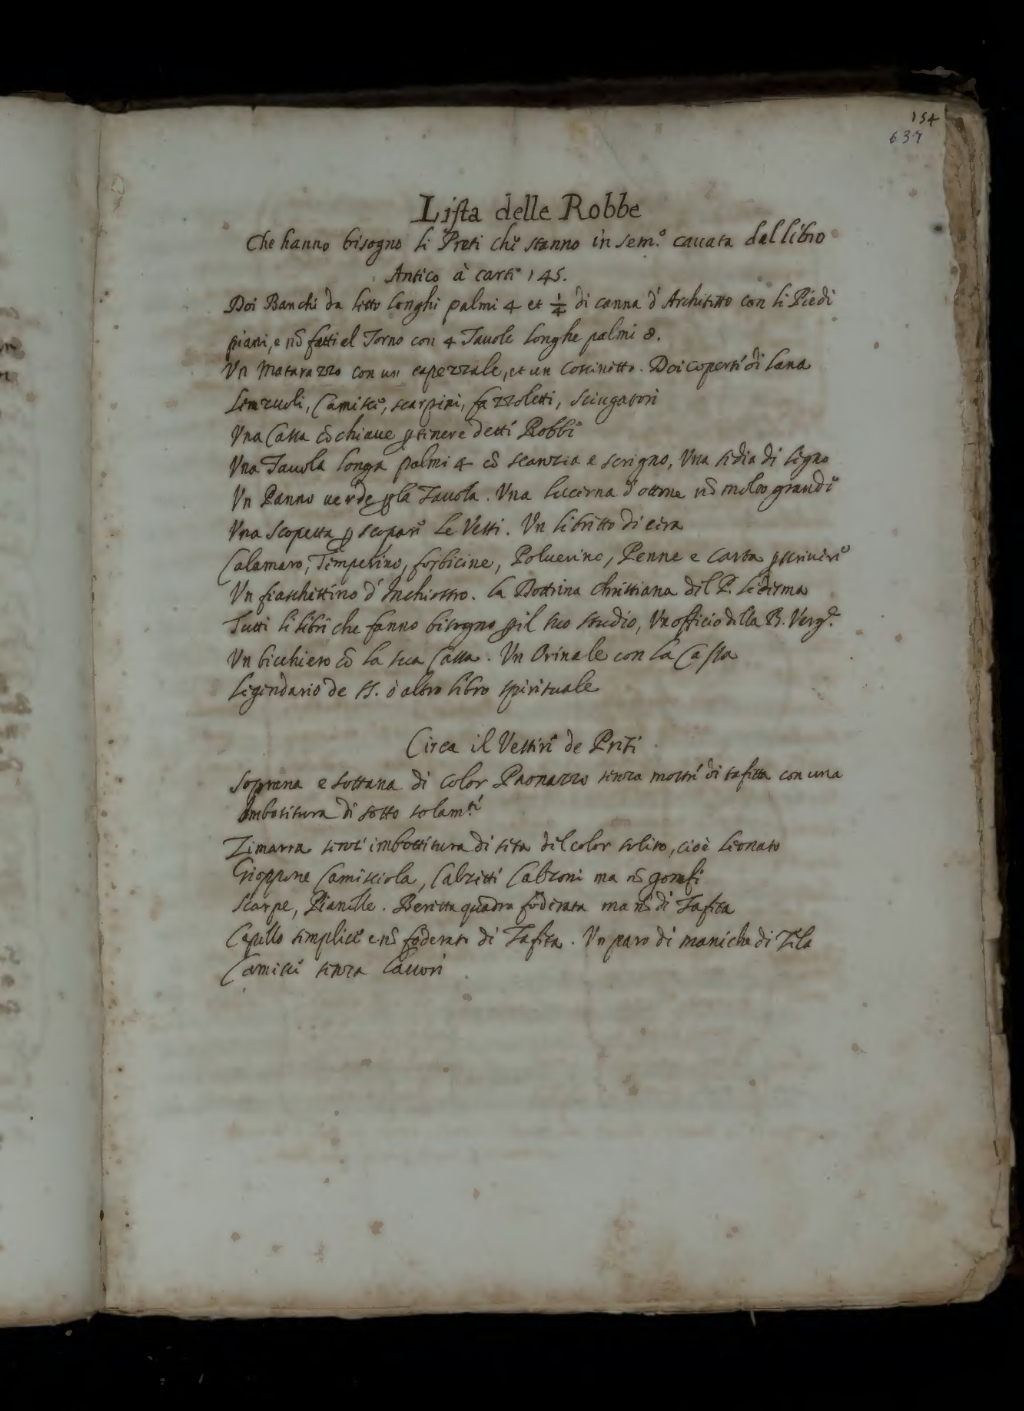 154
637
Lista delle Robbe
Che hanno bisogno li Preti che stanno in sem.º cauata dal libro
Antico à carte 145.
Doi Banchi da letto longhi palmi 4 et 1/4 di canna d'Architetto con li Piedi
piani, e nō fatti al Torno con 4 Tauole longhe palmi 8.
Vn Matarazzo con un capezzale, et un coscinetto. Doi coperte di lana
Lenzuoli, Camisce, scarpini, fazzoletti, sciugatori
Vna Cassa cō chiaue p tenere dette Robbe
Vna Tauola longa palmi 4 cō scanzia e scrigno, Vna sedia di legno
Vn Panno uerde p la Tauola. Vna lucerna d'ottone nō molto grande
Vna Scopetta p scopare le Vesti. Vn libretto di cera
Calamaro, Temperino, forbicine, Poluerino, Penne e carta p scriuere
Vn fiaschettino d'Inchiostro. La Dottrina christiana del P. Ledesma
Tutti li libri che fanno bisogno p il suo studio, Vn officio della B. Verg.e
Vn bicchiero cō la sua Cassa. Vn Orinale con la Cassa
Legendario de SS. ò altro libro spirituale
Circa il Vestire de Preti
Soprana e sottana di color Paonazzo senza mostre di tafetta con una
Imbotitura di sotto solam.te
Zimarra senza imbottitura di seta del color solito, cioè leonato
Gioppone Camisciola, Calzette Calzoni ma nō gonfi
Scarpe, Pianelle. Beretta quadra foderata ma nō di Tafeta
Capello semplice e nō foderato di Tafeta. Vn paro di maniche di Tela
Camisce senza lauori